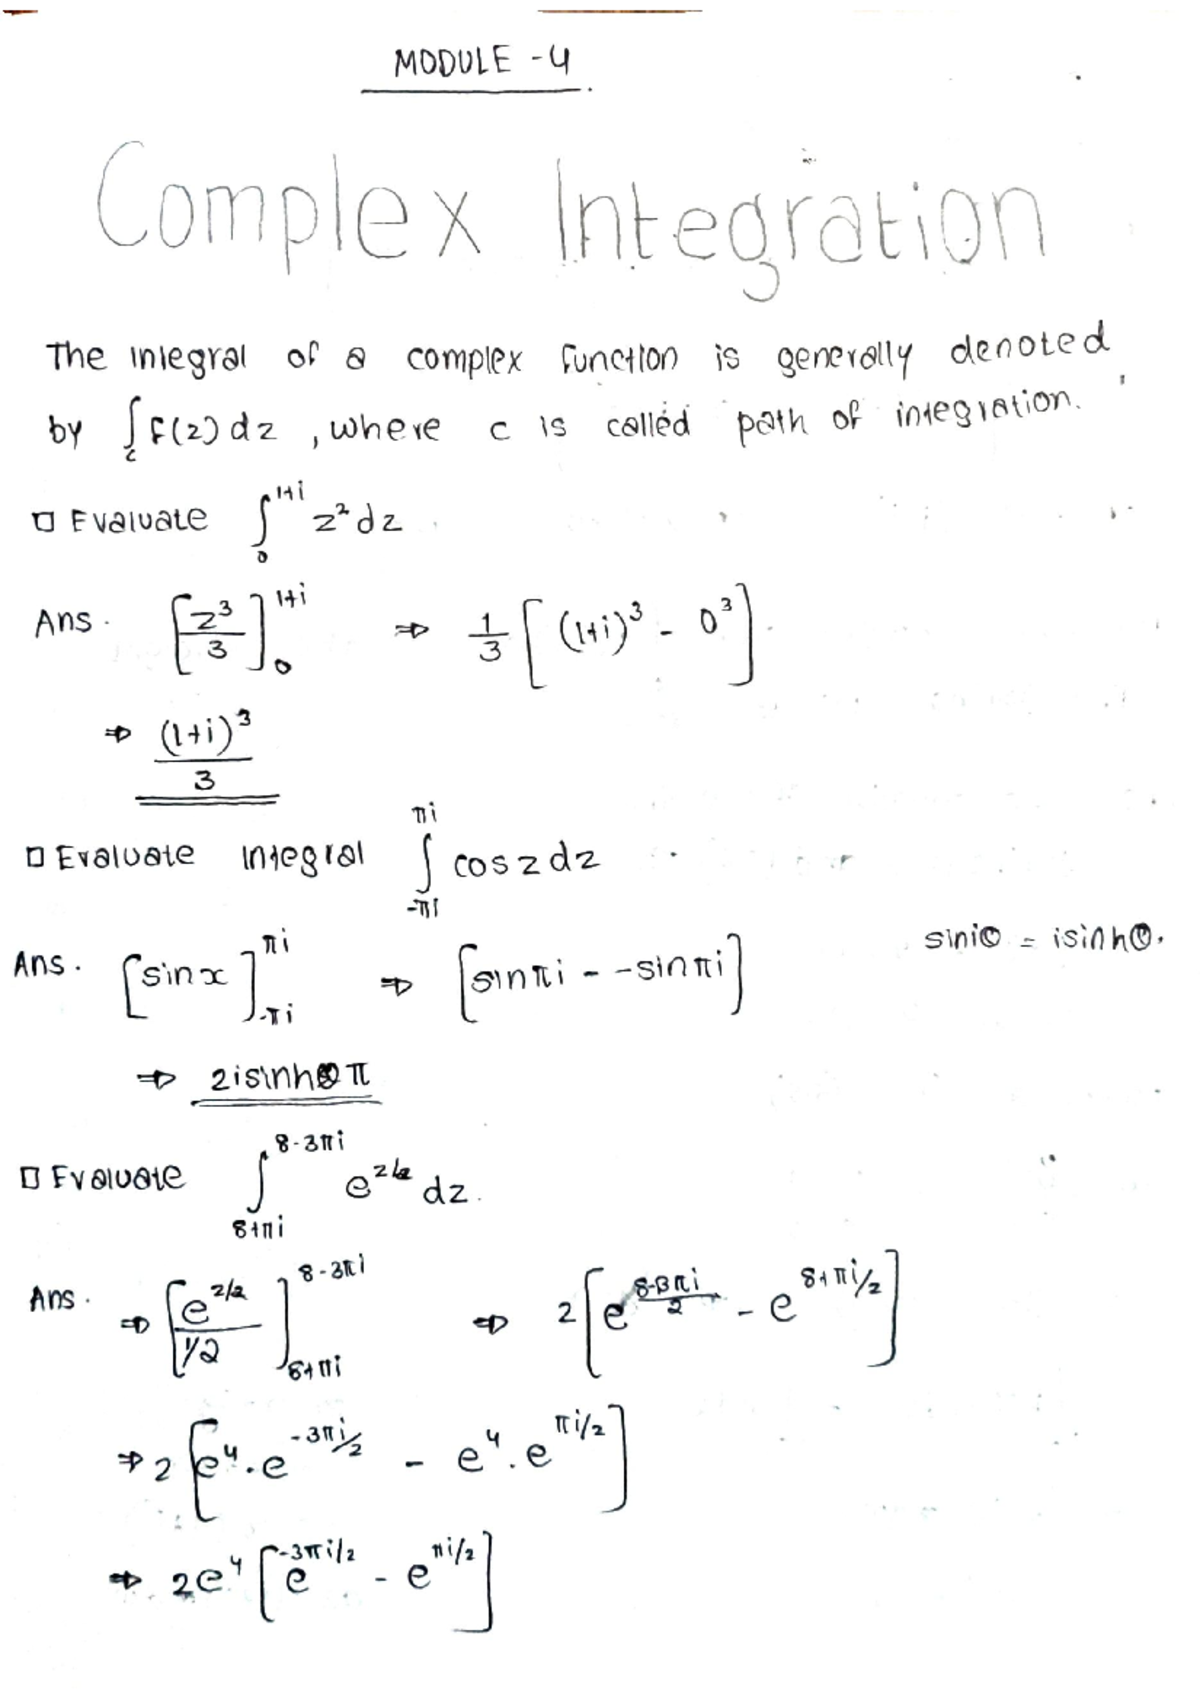 MODULE -4
Complex Integration
The integral of a complex function is generally denoted
by ∫_c f(z) dz , where c is called path of integration.
□ Evaluate ∫_0^{1+i} z² dz
Ans. [z³/3]_0^{1+i} ⇒ 1/3 [(1+i)³ - 0³]
⇒ (1+i)³/3
□ Evaluate integral ∫_{-πi}^{πi} cos z dz
Ans. [sin x]_{-πi}^{πi} ⇒ [sin πi - -sin πi] sin iθ = i sin hθ.
⇒ 2 i sinh π
□ Evaluate ∫_{8+πi}^{8-3πi} e^{z/2} dz.
Ans. ⇒ [e^{z/2}/(1/2)]_{8+πi}^{8-3πi} ⇒ 2 [e^{(8-3πi)/2} - e^{8+πi/2}]
⇒ 2 [e⁴ . e^{-3πi/2} - e⁴ . e^{πi/2}]
⇒ 2e⁴ [e^{-3πi/2} - e^{πi/2}]